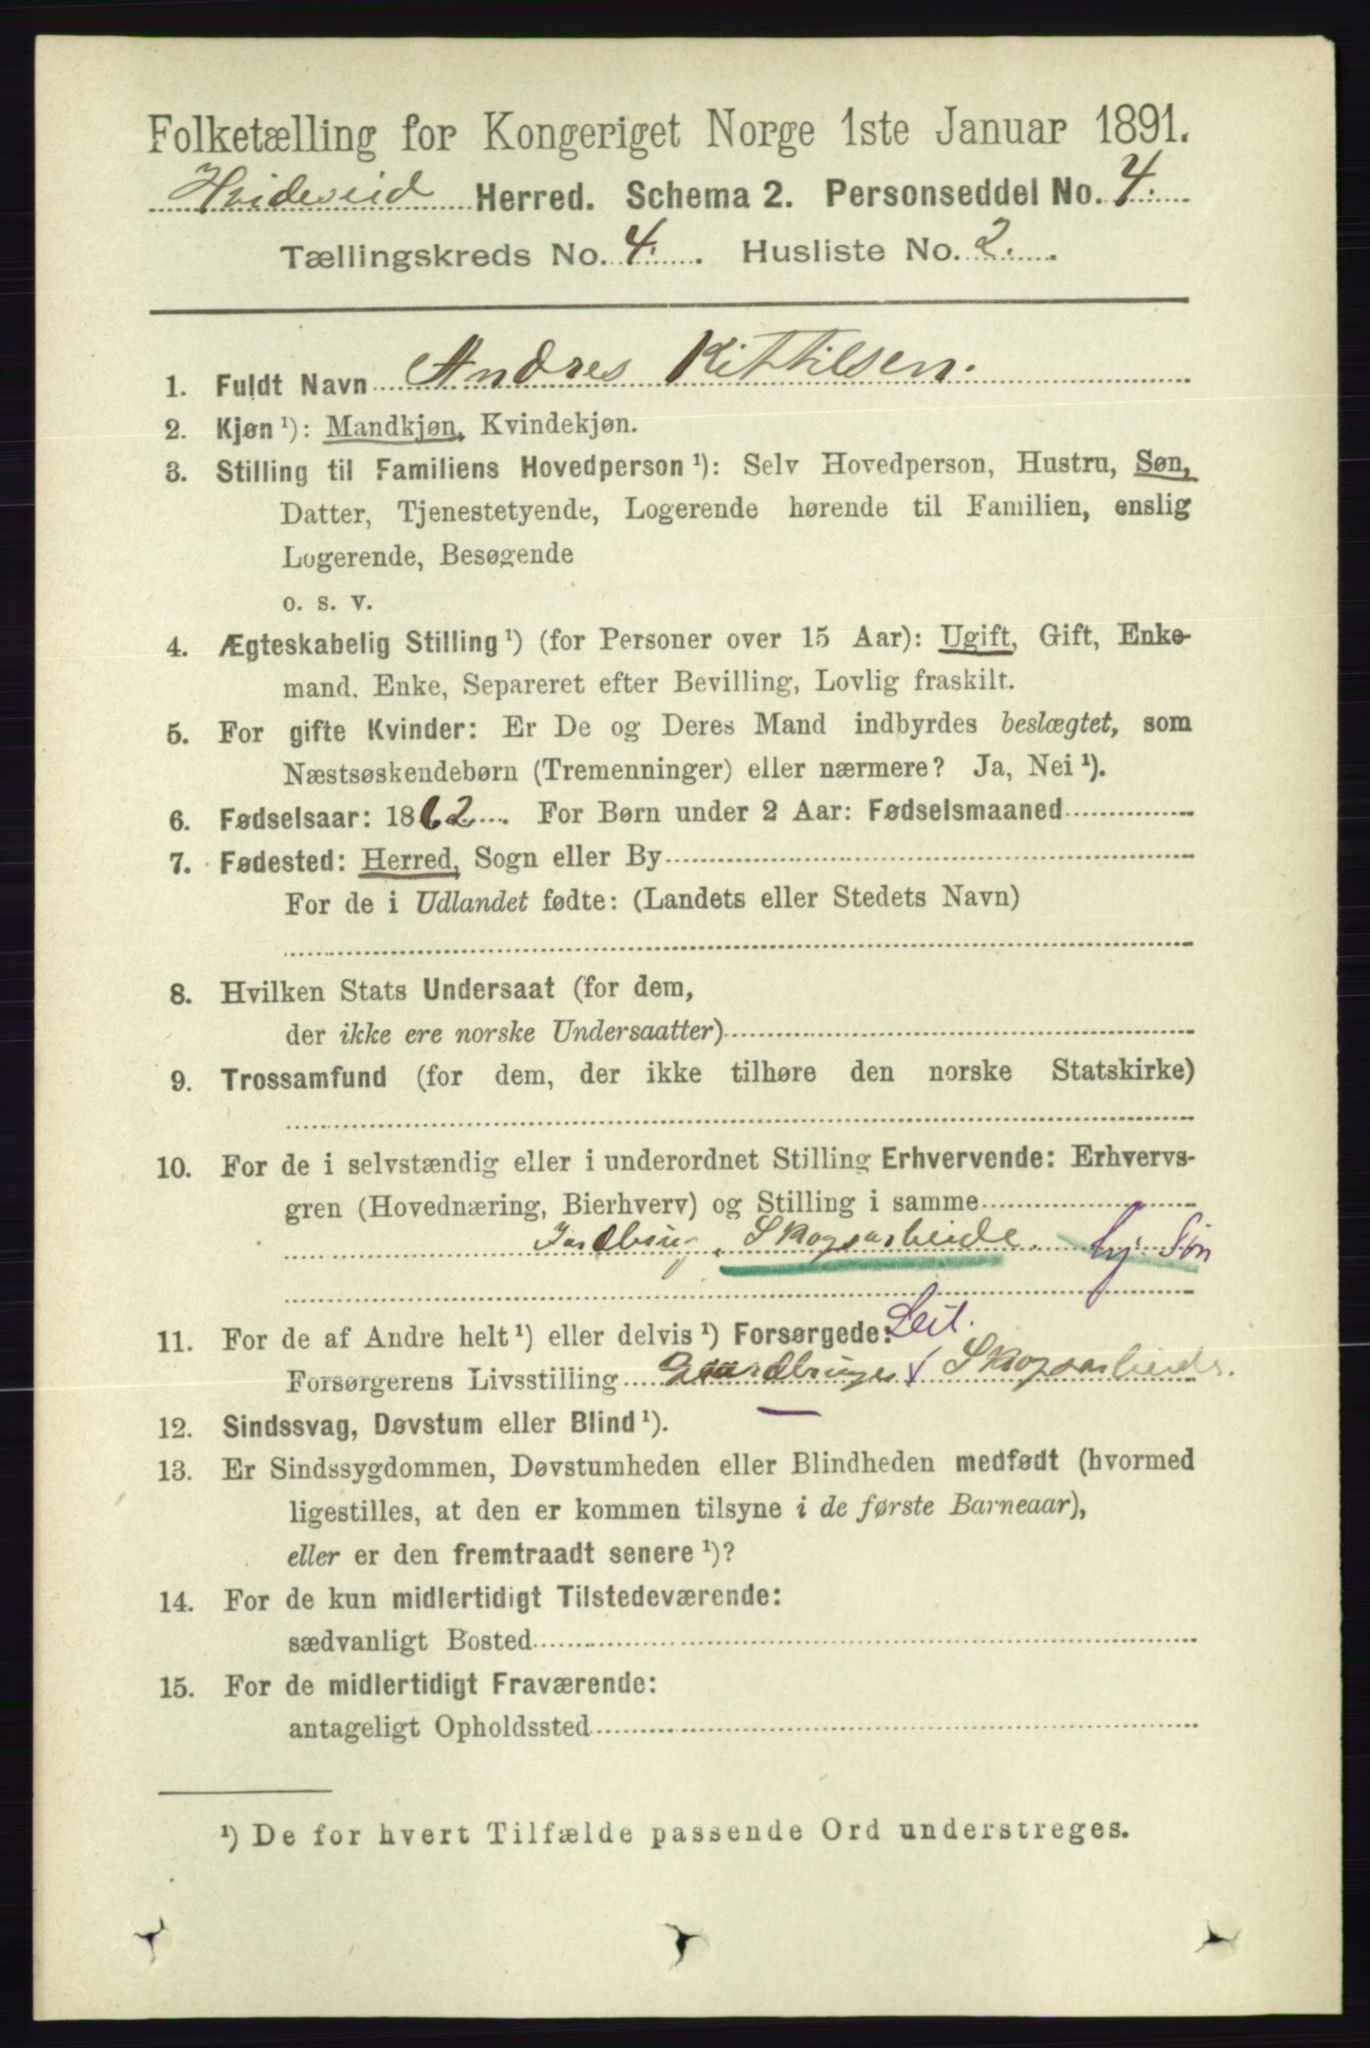 Folketælling for Kongeriget Norge 1ste Januar 1891.
Hvideseid Herred. Schema 2. Personseddel No. 4.
Tællingskreds No. 4. Husliste No. 2.
1. Fuldt Navn Andres Kittilsen.
2. Kjøn ¹): Mandkjøn, Kvindekjøn.
3. Stilling til Familiens Hovedperson ¹): Selv Hovedperson, Hustru, Søn,
Datter, Tjenestetyende, Logerende hørende til Familien, enslig
Logerende, Besøgende
o. s. v.
4. Ægteskabelig Stilling ¹) (for Personer over 15 Aar): Ugift, Gift, Enke-
mand, Enke, Separeret efter Bevilling, Lovlig fraskilt.
5. For gifte Kvinder: Er De og Deres Mand indbyrdes beslægtet, som
Næstsøskendebørn (Tremenninger) eller nærmere? Ja, Nei ¹).
6. Fødselsaar: 1862. For Børn under 2 Aar: Fødselsmaaned
7. Fødested: Herred, Sogn eller By
For de i Udlandet fødte: (Landets eller Stedets Navn)
8. Hvilken Stats Undersaat (for dem,
der ikke ere norske Undersaatter)
9. Trossamfund (for dem, der ikke tilhøre den norske Statskirke)
10. For de i selvstændig eller i underordnet Stilling Erhvervende: Erhvervs-
gren (Hovednæring, Bierhverv) og Stilling i samme
Jordbrug, Skogsarbeide. hj. Søn
11. For de af Andre helt ¹) eller delvis ¹) Forsørgede: Leil.
Forsørgerens Livsstilling Gaardbruger Skogsarbeide.
12. Sindssvag, Døvstum eller Blind ¹).
13. Er Sindssygdommen, Døvstumheden eller Blindheden medfødt (hvormed
ligestilles, at den er kommen tilsyne i de første Barneaar),
eller er den fremtraadt senere ¹)?
14. For de kun midlertidigt Tilstedeværende:
sædvanligt Bosted
15. For de midlertidigt Fraværende:
antageligt Opholdssted
¹) De for hvert Tilfælde passende Ord understreges.